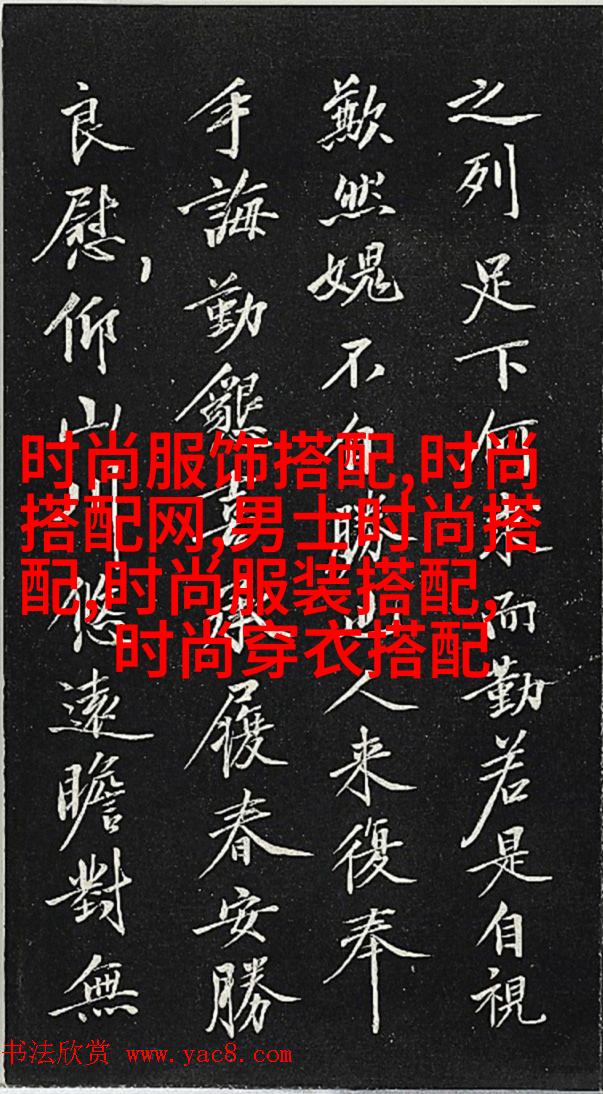 之列足下何来而勤若是自視
歎然媿不自勝也人来復奉
手誨勤懇喜承履春安勝
良慰,仰山川悠遠瞻對無
时尚服饰搭配,时尚
搭配网,男士时尚搭
配,时尚服装搭配,
时尚穿衣搭配
书法欣赏 www.yac8.com